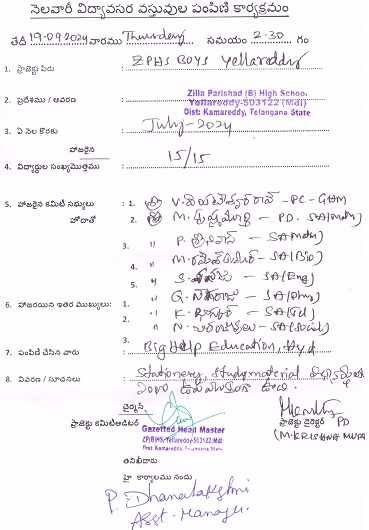 నెలవారీ విద్యావసర వస్తువుల పంపిణి కార్యక్రమం
తేది 19.09.2024 వారము Thursday సమయం 2.30 గం
1. ప్రాజెక్టు పేరు : ZPHS BOYS Yellareddy
2. ప్రదేశము / ఆవరణ : Zilla Parishad (B) High School
Yellareddy-503122 (Mdl)
Dist: Kamareddy, Telangana State
3. ఏ నెల కొరకు : July-2024
హాజరైన
4. విద్యార్థుల సంఖ్య మొత్తము : 15/15
5. హాజరైన కమిటీ సభ్యులు : 1. - PC - GHM
హోదాతో 2. M. కృష్ణమూర్తి - PD. SA(Maths)
3. " P. శ్రీనివాస్ - SA(Maths)
4. " - SA(Bio)
5. " - SA(Eng)
6. హాజరయిన ఇతర ముఖ్యులు: 1. " G. నాగరాజు - SA(Phy)
2. " K. - SA(Tel)
" N. - SA(Social)
3.
7. పంపిణి చేసిన వారు : Big Help Education, Hyd
8. వివరణ / సూచనలు : Stationery, Study material
ఉంది.
చైర్మన్
ప్రాజెక్టు కమిటీఆడిటర్
Gazetted Head Master
ZP(B)HS, Yellareddy-503122(Mdl)
Dist: Kamareddy, Telangana State
ప్రాజెక్టు డైరెక్టర్ PD
తనిఖీదారు
హై కార్యాలము నందు
P. Dhanalakshmi
Asst. Manager.